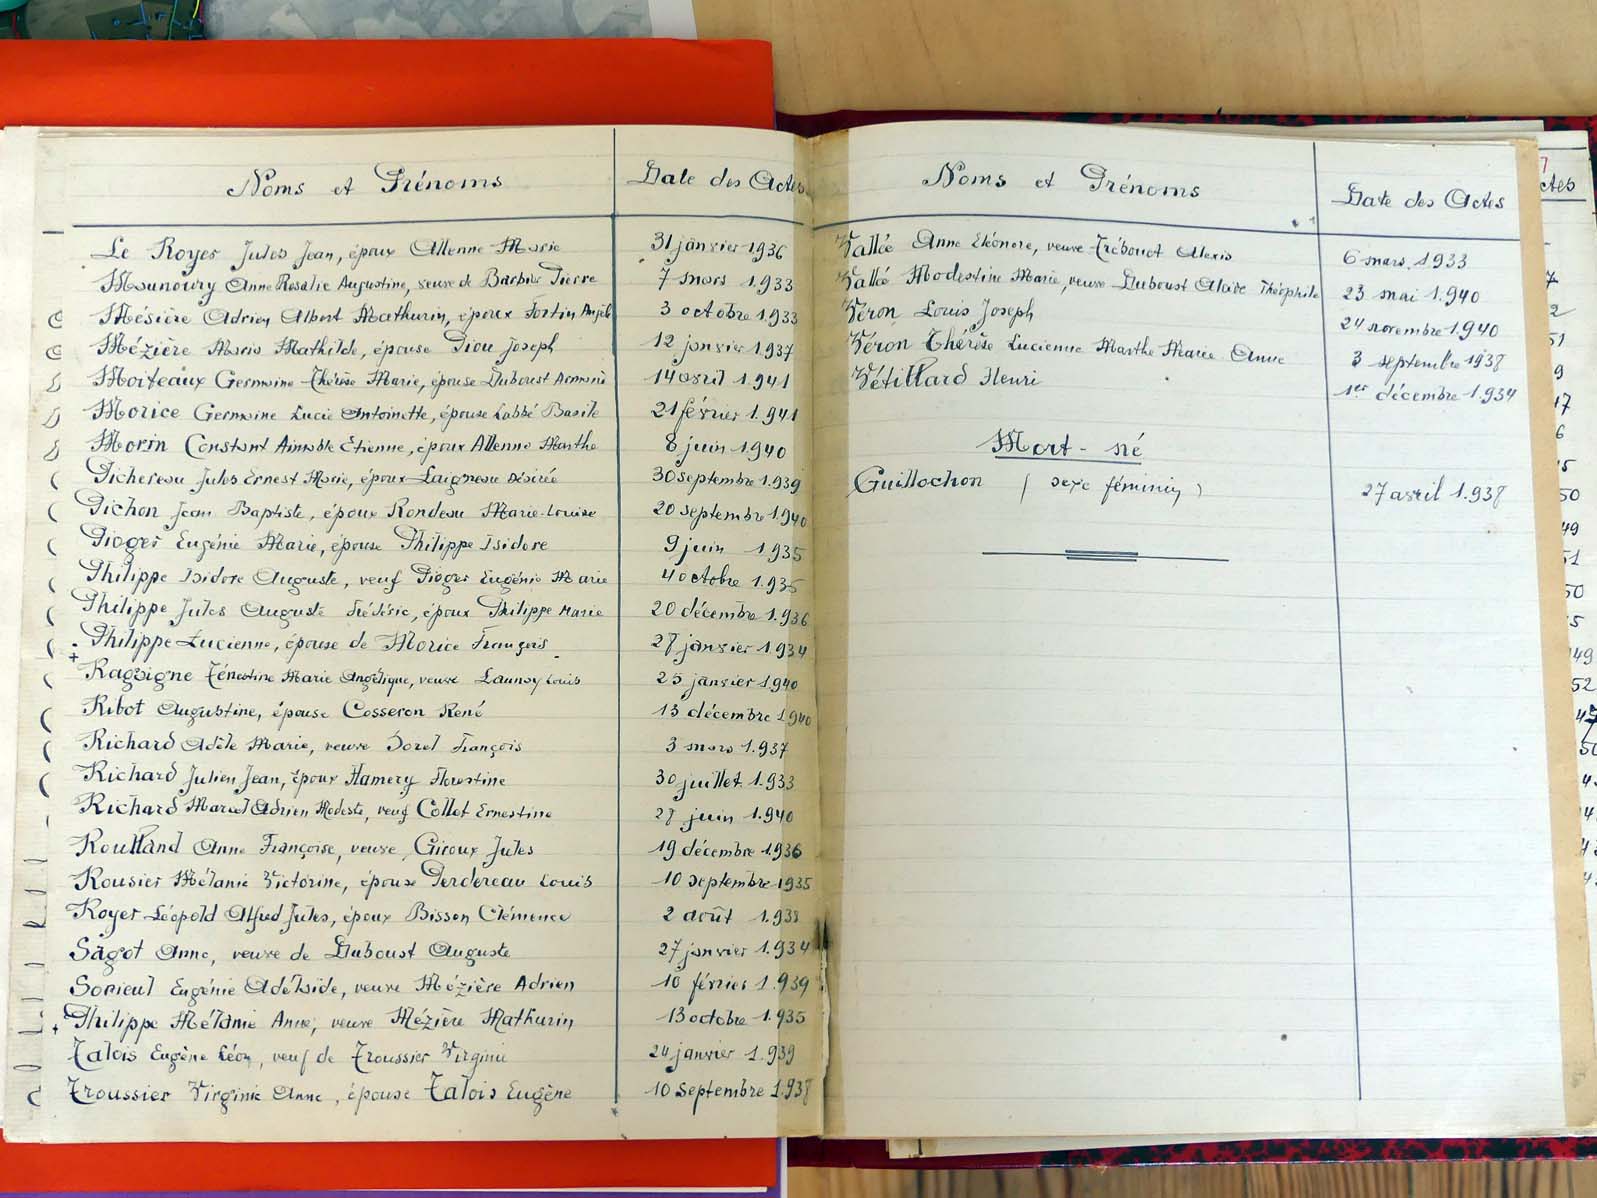 Noms et Prénoms Date des Actes
Le Royer Jules Jean, époux Allenne Marie 31 janvier 1936
Maunoury Anne Rosalie Augustine, veuve de Barbier Pierre 7 mars 1.933
Mésière Adrien Albert Mathurin, époux Fortin Angèle 3 octobre 1.933
Mézière Maria Mathilde, épouse Piou Joseph 12 janvier 1.937
Morteaux Germaine Thérèse Marie, épouse Duboust Armand 14 avril 1.941
Morice Germaine Lucie Antoinette, épouse Labbé Basile 21 février 1.941
Morin Constant Aimable Etienne, époux Allenne Marthe 8 juin 1.940
Pichereau Jules Ernest Marie, époux Laigneau Désirée 30 septembre 1.939
Pichon Jean Baptiste, époux Rondeau Marie-Louise 20 septembre 1.940
Pioger Eugénie Marie, épouse Philippe Isidore 9 juin 1.935
Philippe Isidore Auguste, veuf Pioger Eugénie Marie 4 octobre 1.935
Philippe Jules Auguste Frédéric, époux Philippe Marie 20 décembre 1.936
+ Philippe Lucienne, épouse de Morice François 28 janvier 1.934
Ragaigne Ernestine Marie Angélique, veuve Launay Louis 25 janvier 1.940
Ribot Augustine, épouse Cosseron René 13 décembre 1.940
Richard Adèle Marie, veuve Dorel François 3 mars 1.937
Richard Julien Jean, époux Hamery Florestine 30 juillet 1.933
Richard Marcel Adrien Modeste, veuf Collet Ernestine 28 juin 1.940
Roulland Anne Françoise, veuve Giroux Jules 19 décembre 1.936
Rousier Mélanie Victorine, épouse Perdereau Louis 10 septembre 1.935
Royer Léopold Alfred Jules, époux Bisson Clémence 2 août 1.938
Sagot Anne, veuve de Duboust Auguste 27 janvier 1.934
Sorieul Eugénie Adélaïde, veuve Mézière Adrien 10 février 1.939
+ Philippe Mélanie Anne, veuve Mézière Mathurin 13 octobre 1.935
Talois Eugène Léon, veuf de Troussier Virginie 24 janvier 1.939
Troussier Virginie Anne, épouse Talois Eugène 10 septembre 1.938
Noms et Prénoms Date des Actes
Vallée Anne Eléonore, veuve Trébouet Alexis 6 mars 1.933
Vallée Modestine Marie, veuve Duboust Alaire Théophile 23 mai 1.940
Véron Louis Joseph 24 novembre 1.940
Véron Thérèse Lucienne Marthe Marie Anne 3 septembre 1938
Vétillard Henri 1er décembre 1.934
Mort-né
Guillochon (sexe féminin) 27 avril 1.938